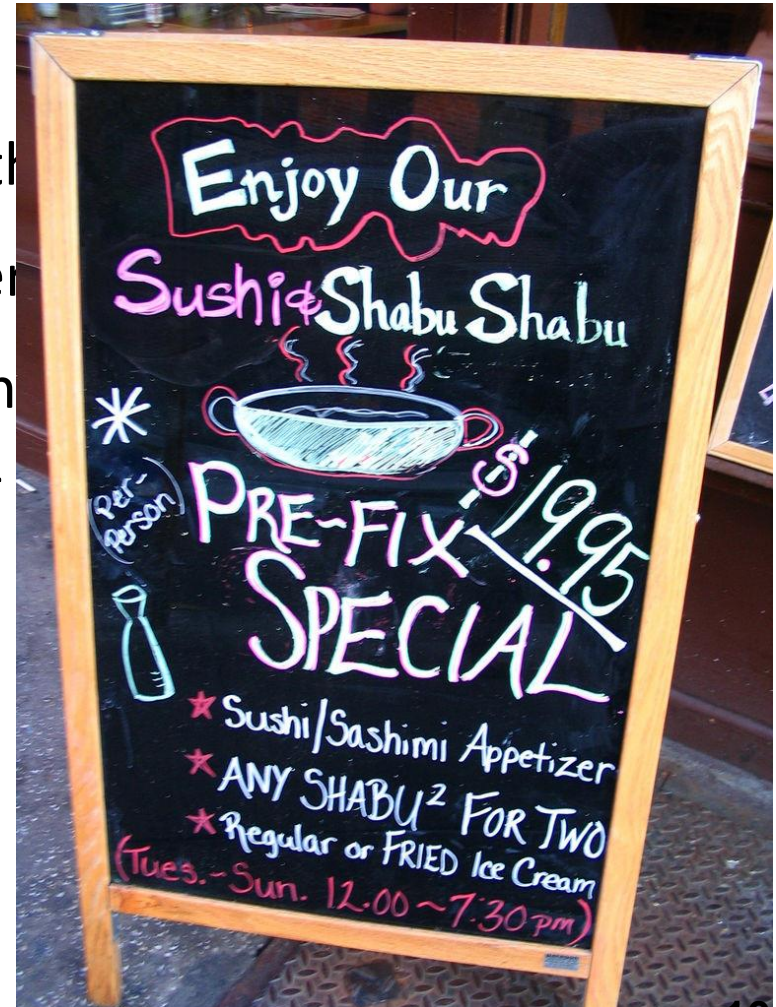 Enjoy Our
Sushi & Shabu Shabu
(Per-
Person)
PRE-FIX
$19.95
SPECIAL
Sushi/Sashimi Appetizer
ANY SHABU² FOR TWO
Regular or FRIED Ice Cream
(Tues.-Sun. 12.00~7:30pm)